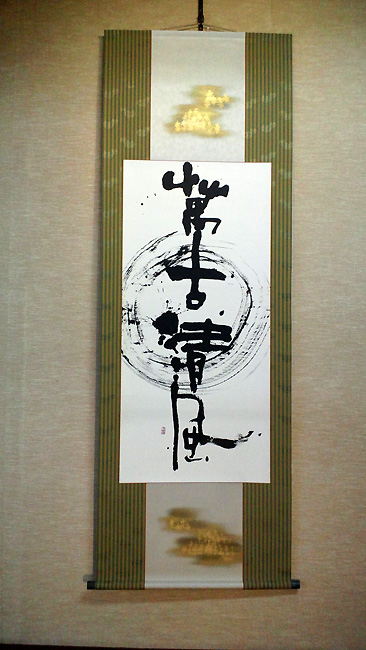 萬古清風